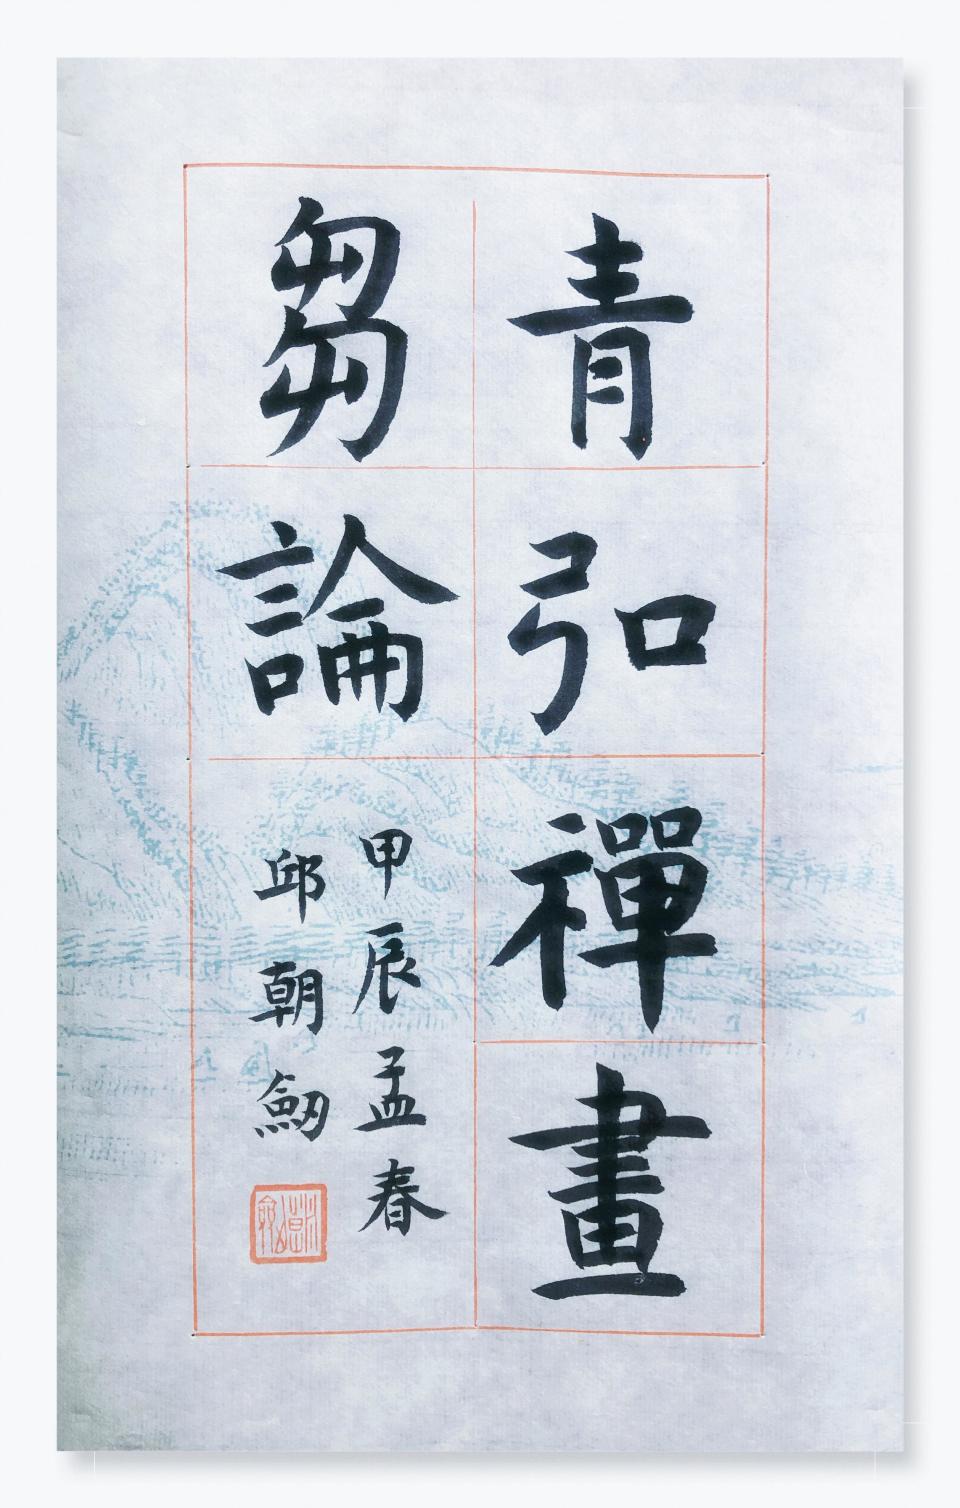 青弘禪畫
芻論
甲辰孟春
邱朝劒